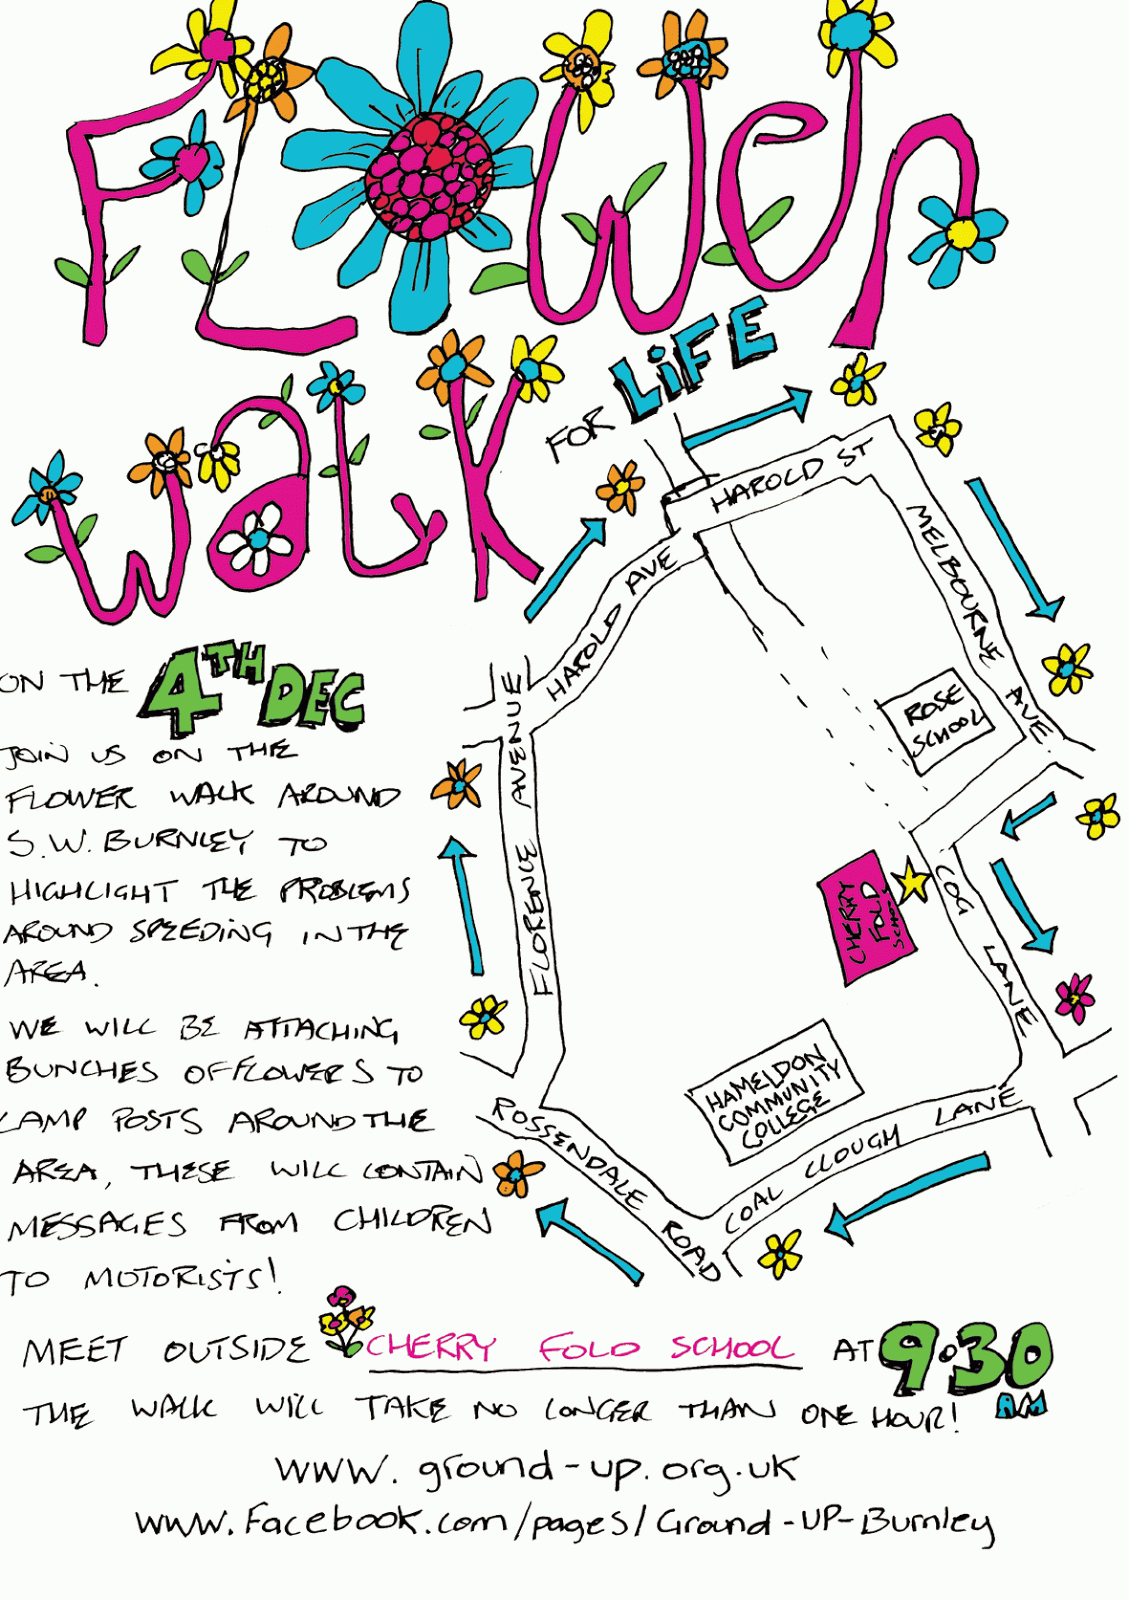 FLOWER
WALK
FOR LiFE
ON THE 4TH DEC
JOiN US ON THE
FLOWER WALK AROUND
S.W. BURNLEY TO
HIGHLIGHT THE PROBLEMS
AROUND SPEEDING IN THE
AREA.
WE WILL BE ATTACHING
BUNCHES OF FLOWERS TO
LAMP POSTS AROUND THE
AREA, THESE WILL CONTAIN
MESSAGES FROM CHILDREN
TO MOTORiSTS!
HAROLD ST
HAROLD AVE
MELBOURNE AVE.
FLORENCE AVENUE
ROSE
SCHOOL
CHERRY
FOLD
SCHOOL
COG LANE
HAMELDON
COMMUNITY
COLLEGE
ROSSENDALE ROAD
COAL CLOUGH LANE
MEET OUTSIDE CHERRY FOLD SCHOOL AT 9:30 AM
THE WALK WILL TAKE NO LONGER THAN ONE HOUR!
www.ground-up.org.uk
www.Facebook.com/pages/Ground-UP-Burnley